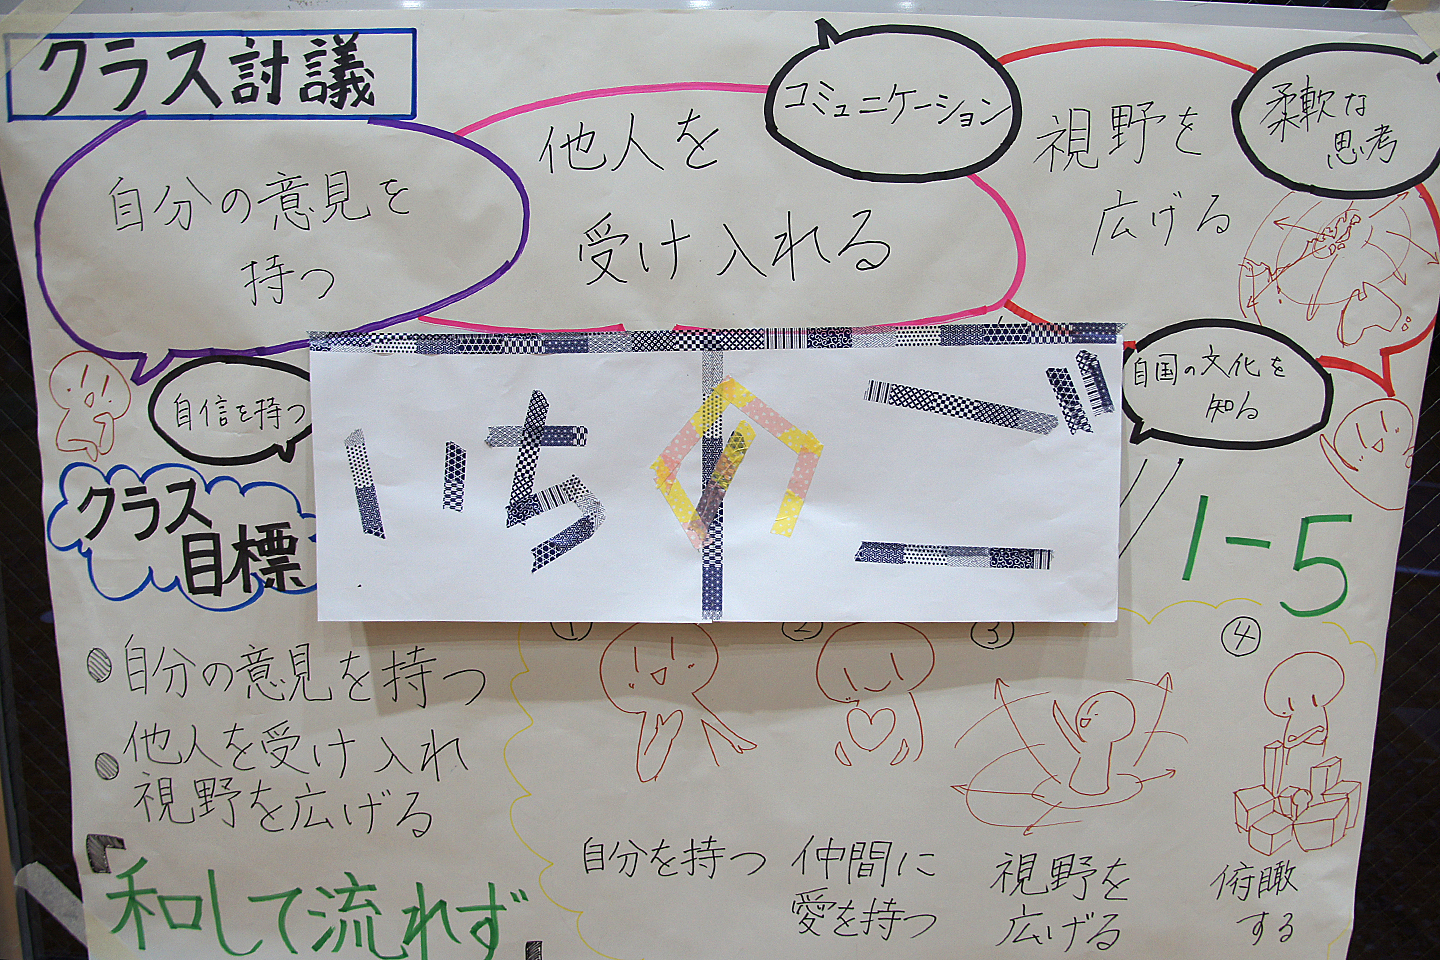 クラス討議
自分の意見を
持つ
他人を
受け入れる
コミュニケーション
視野を
広げる
柔軟な
思考
自信を持つ
自国の文化を
知る
いちのご
1-5
クラス
目標
自分の意見を持つ
他人を受け入れ
視野を広げる
「和して流れず」
①
自分を持つ
②
仲間に
愛を持つ
③
視野を
広げる
④
俯瞰
する